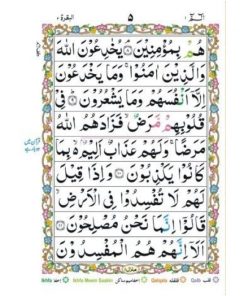 البقرة ٢ ٥ الٓمّٓ ١
هُمْ بِمُؤْمِنِيْنَ ۞ يُخٰدِعُوْنَ اللّٰهَ
وَالَّذِيْنَ اٰمَنُوْا ۚ وَمَا يَخْدَعُوْنَ
اِلَّاۤ اَنْفُسَهُمْ وَمَا يَشْعُرُوْنَ ۞ فِيْ
قُلُوْبِهِمْ مَّرَضٌ ۙ فَزَادَهُمُ اللّٰهُ
مَرَضًا ۚ وَلَهُمْ عَذَابٌ اَلِيْمٌۢ ۙ بِمَا
كَانُوْا يَكْذِبُوْنَ ۞ وَاِذَا قِيْلَ
لَهُمْ لَا تُفْسِدُوْا فِي الْاَرْضِ ۙ
قَالُوْۤا اِنَّمَا نَحْنُ مُصْلِحُوْنَ ۞
اَلَاۤ اِنَّهُمْ هُمُ الْمُفْسِدُوْنَ
منزل ١
Ikhfa اخفا Ikhfa Meem Saakin اخفا میم ساکن Qalqala قلقلہ Qalb قلب